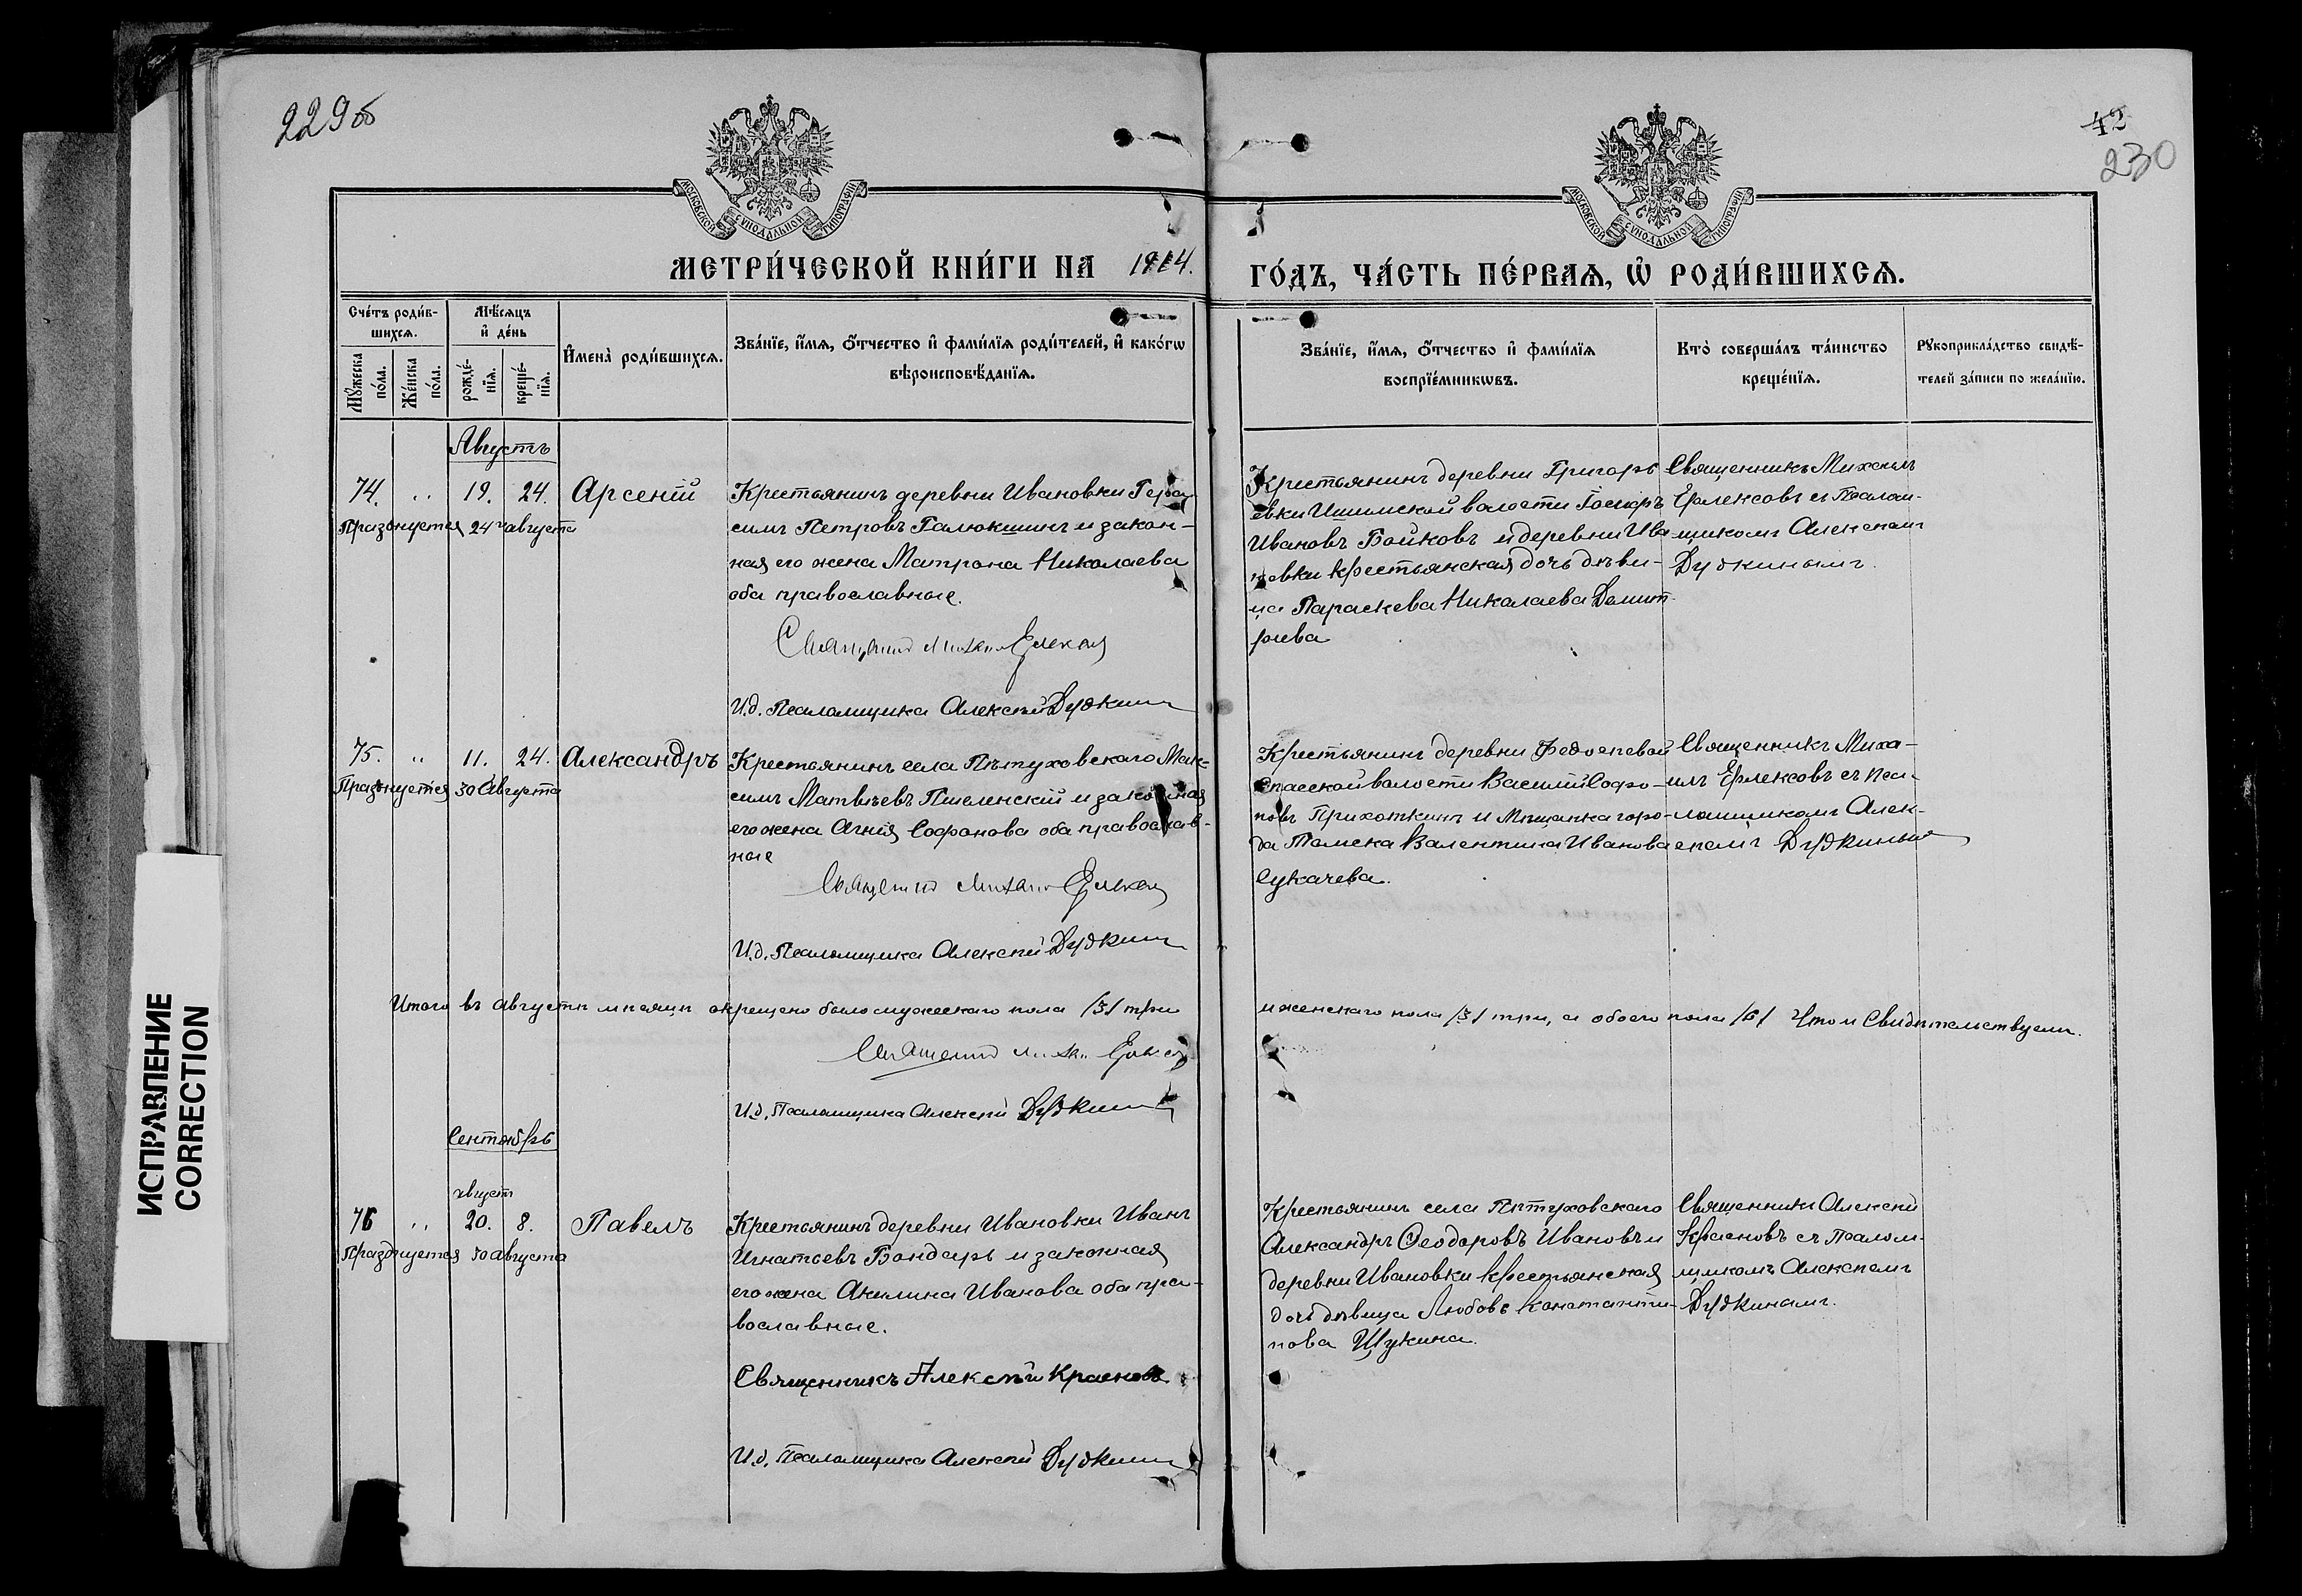 229 об
42
230
МОСКОВСКОЙ СѴНОДАЛЬНОЙ ТИПОГРАФІИ
МОСКОВСКОЙ СѴНОДАЛЬНОЙ ТИПОГРАФІИ
МЕТРИ́ЧЕСКОЙ КНИ́ГИ НА 1914.
ГО́ДЪ, ЧА́СТЬ ПЕ́РВАЯ, Ѡ҆ РОДИ́ВШИХСЯ.
Сче́тъ роди́в-
шихся.
Мѣ́сяцъ
и҆ де́нь
Мꙋ́жеска
по́ла.
Же́нска
по́ла.
рожде́-
нїя.
креще́-
нїя.
И҆мена̀ роди́вшихся.
Зва́нїе, и҆́мя, ѻ҆́тчество и҆ фами́лїя роди́телей, и҆ како́гѡ
вѣроисповѣ́данїя.
Зва́нїе, и҆́мя, ѻ҆́тчество и҆ фами́лїя
воспрїе́мникѡвъ.
Кто̀ соверша́лъ та́инство
креще́нїя.
Рꙋкоприкла́дство свидѣ́-
телей за́писи по жела́нїю.
Августъ
74. „ 19. 24. Арсеній
Празднуется 24го августа
Крестьянинъ деревни Ивановки Гера-
симъ Петровъ Галюкшинъ и закон-
ная его жена Матрона Николаева
оба православные.
Священникъ Михаилъ Ерлексовъ
И.д. Псаломщика Алексѣй Дудкинъ
Крестьянинъ деревни Григорь-
евки Ишимской волости
Ивановъ Бойковъ и деревни Ива-
новки крестьянская дочь дѣви-
ца Параскева Николаева Димит-
ріева
Священникъ Михаилъ
Ерлексовъ съ Псалом-
щикомъ Алексѣемъ
Дудкинымъ.
75. „ 11. 24. Александръ
Празднуется 30 Августа
Крестьянинъ села Пѣтуховскаго Мак-
симъ Матвѣевъ Пшеленскій и законная
его жена Агнія Софонова оба православ-
ные
Священникъ Михаилъ Ерлексовъ
И.д. Псаломщика Алексѣй Дудкинъ
Крестьянинъ деревни Федосеевой
Спасской волости Василій Софро-
новъ Прихоткинъ и Мѣщанка горо-
да Томска Валентина Иванова
Сукачева.
Священникъ Миха-
илъ Ерлексовъ съ Пса-
ломщикомъ Алек-
сѣемъ Дудкинымъ
Итого въ августѣ мѣсяцѣ окрещено было мужескаго пола /3/ три
и женскаго пола /3/ три, а обоего пола /6/ Что и Свидѣтельствуемъ.
Священникъ Михаилъ Ерлексовъ
И.д. Псаломщика Алексѣй Дудкинъ
Сентябрь
августъ
76 „ 20. 8. Павелъ
Празднуется 30 августа
Крестьянинъ деревни Ивановки Иванъ
Игнатьевъ Бондарь и законная
его жена Акилина Иванова оба пра-
вославные.
Священникъ Алексѣй Красновъ.
И.д. Псаломщика Алексѣй Дудкинъ
Крестьянинъ села Пѣтуховскаго
Александръ Ѳеодоровъ Ивановъ и
деревни Ивановки крестьянская
дочь дѣвица Любовь Константи-
нова Щукина.
Священникъ Алексѣй
Красновъ съ Псалом-
щикомъ Алексѣемъ
Дудкинымъ.
ИСПРАВЛЕНИЕ
CORRECTION